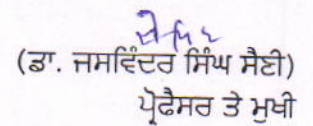 (ਡਾ. ਜਸਵਿੰਦਰ ਸਿੰਘ ਸੈਣੀ)
ਪ੍ਰੋਫੈਸਰ ਤੇ ਮੁਖੀ